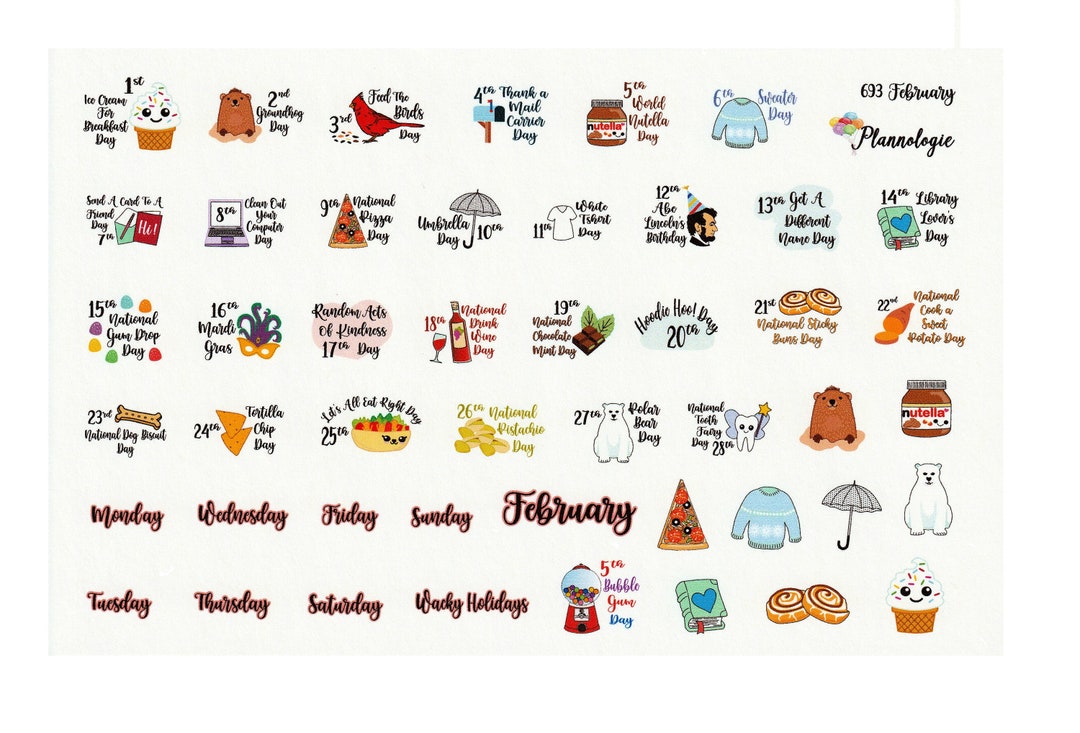 1st
Ice Cream
For
Breakfast
Day
2nd
Groundhog
Day
Feed The
Birds
3rd
Day
4th Thank a
Mail
Carrier
Day
5th
World
Nutella
Day
nutella
6th Sweater
Day
693 February
Plannologie
Send A Card To A
Friend
Day
7th
Hi!
8th
Clean Out
Your
Computer
Day
9th National
Pizza
Day
Umbrella
Day 10th
11th
White
Tshirt
Day
12th
Abe
Lincoln's
Birthday
13th Get A
Different
Name Day
14th Library
Lover's
Day
15th
National
Gum Drop
Day
16th
Mardi
Gras
Random Acts
Of Kindness
17th Day
18th
National
Drink
Wine
Day
19th
National
Chocolate
Mint Day
Hoodie Hoo! Day
20th
21st
National Sticky
Buns Day
22nd National
Cook a
Sweet
Potato Day
23rd
National Dog Biscuit
Day
24th
Tortilla
Chip
Day
Let's All Eat Right Day
25th
26th National
Pistachio
Day
27th
Polar
Bear
Day
National
Tooth
Fairy
Day
28th
nutella
Monday
Wednesday
Friday
Sunday
February
Tuesday
Thursday
Saturday
Wacky Holidays
5th
Bubble
Gum
Day